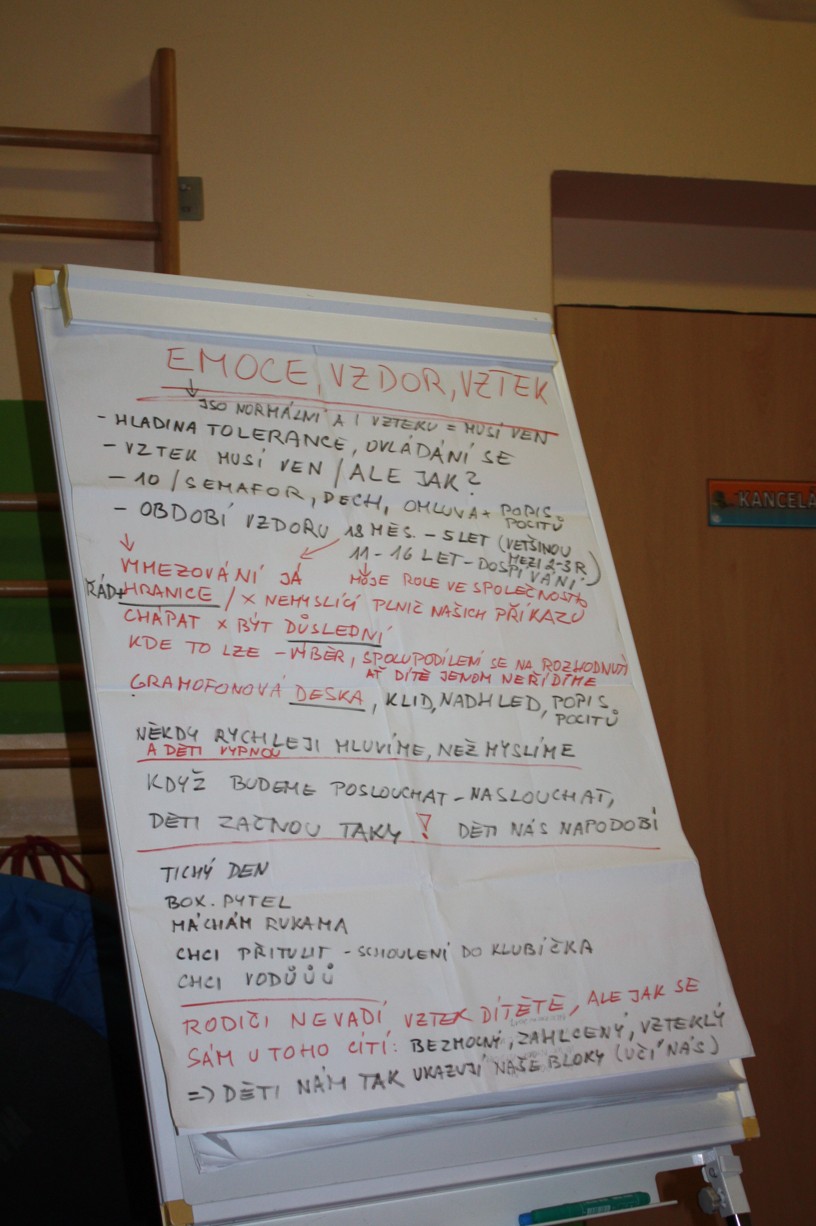 EMOCE, VZDOR, VZTEK
JSO NORMÁLNÍ A I VZTEKU = MUSÍ VEN
- HLADINA TOLERANCE, OVLÁDÁNÍ SE
- VZTEK MUSÍ VEN / ALE JAK?
- 10 / SEMAFOR, DECH, OMLUVA + POPIS POCITŮ
- OBDOBÍ VZDORU 18 MĚS. - 5 LET (VĚTŠINOU MEZI 2-3 R)
11 - 16 LET - DOSPÍVÁNÍ
VMEZOVÁNÍ JÁ
MOJE ROLE VE SPOLEČNOSTI
ŘÁD + HRANICE / X NEMYSLÍCÍ PLNIČ NAŠICH PŘÍKAZŮ
CHÁPAT X BÝT DŮSLEDNÍ
KDE TO LZE - VÝBĚR, SPOLUPODÍLENÍ SE NA ROZHODNUTÍ
AŤ DÍTĚ JENOM NEŘÍDÍME
GRAMOFONOVÁ DESKA, KLID, NADHLED, POPIS POCITŮ
NĚKDY RYCHLEJI MLUVÍME, NEŽ MYSLÍME
A DĚTI VYPNOU
KDYŽ BUDEME POSLOUCHAT - NASLOUCHAT,
DĚTI ZAČNOU TAKY! DĚTI NÁS NAPODOBÍ
TICHÝ DEN
BOX. PYTEL
MÁCHÁM RUKAMA
CHCI PŘITULIT - SCHOULENÍ DO KLUBÍČKA
CHCI VODŮŮŮ
RODIČI NEVADÍ VZTEK DÍTĚTE, ALE JAK SE
SÁM U TOHO CÍTÍ: BEZMOCNÝ, ZAHLCENÝ, VZTEKLÝ
=> DĚTI NÁM TAK UKAZUJÍ NAŠE BLOKY (UČÍ NÁS)
KANCELÁ